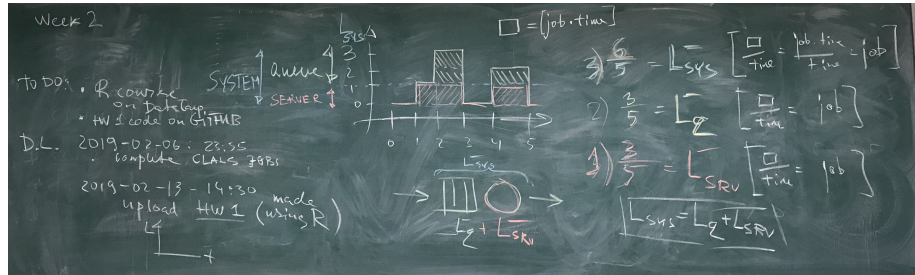 Week 2
TO DO: • R course
on Datacamp
• HW1 code on GitHUB
D.L. 2019-02-06: 23:55
• complete CLASS JOBS
2019-02-13-14:30
upload HW1 (made using R)
L
t
SYSTEM
Queue
SERVER
L sys
3
2
1
0
0 1 2 3 4 5
□ = [job·time]
L sys
L q + L SRV
3) 6/5 = L sys [□/time = job·time/time = job]
2) 3/5 = L q [□/time = job]
1) 3/5 = L SRV [□/time = job]
L sys = L q + L SRV